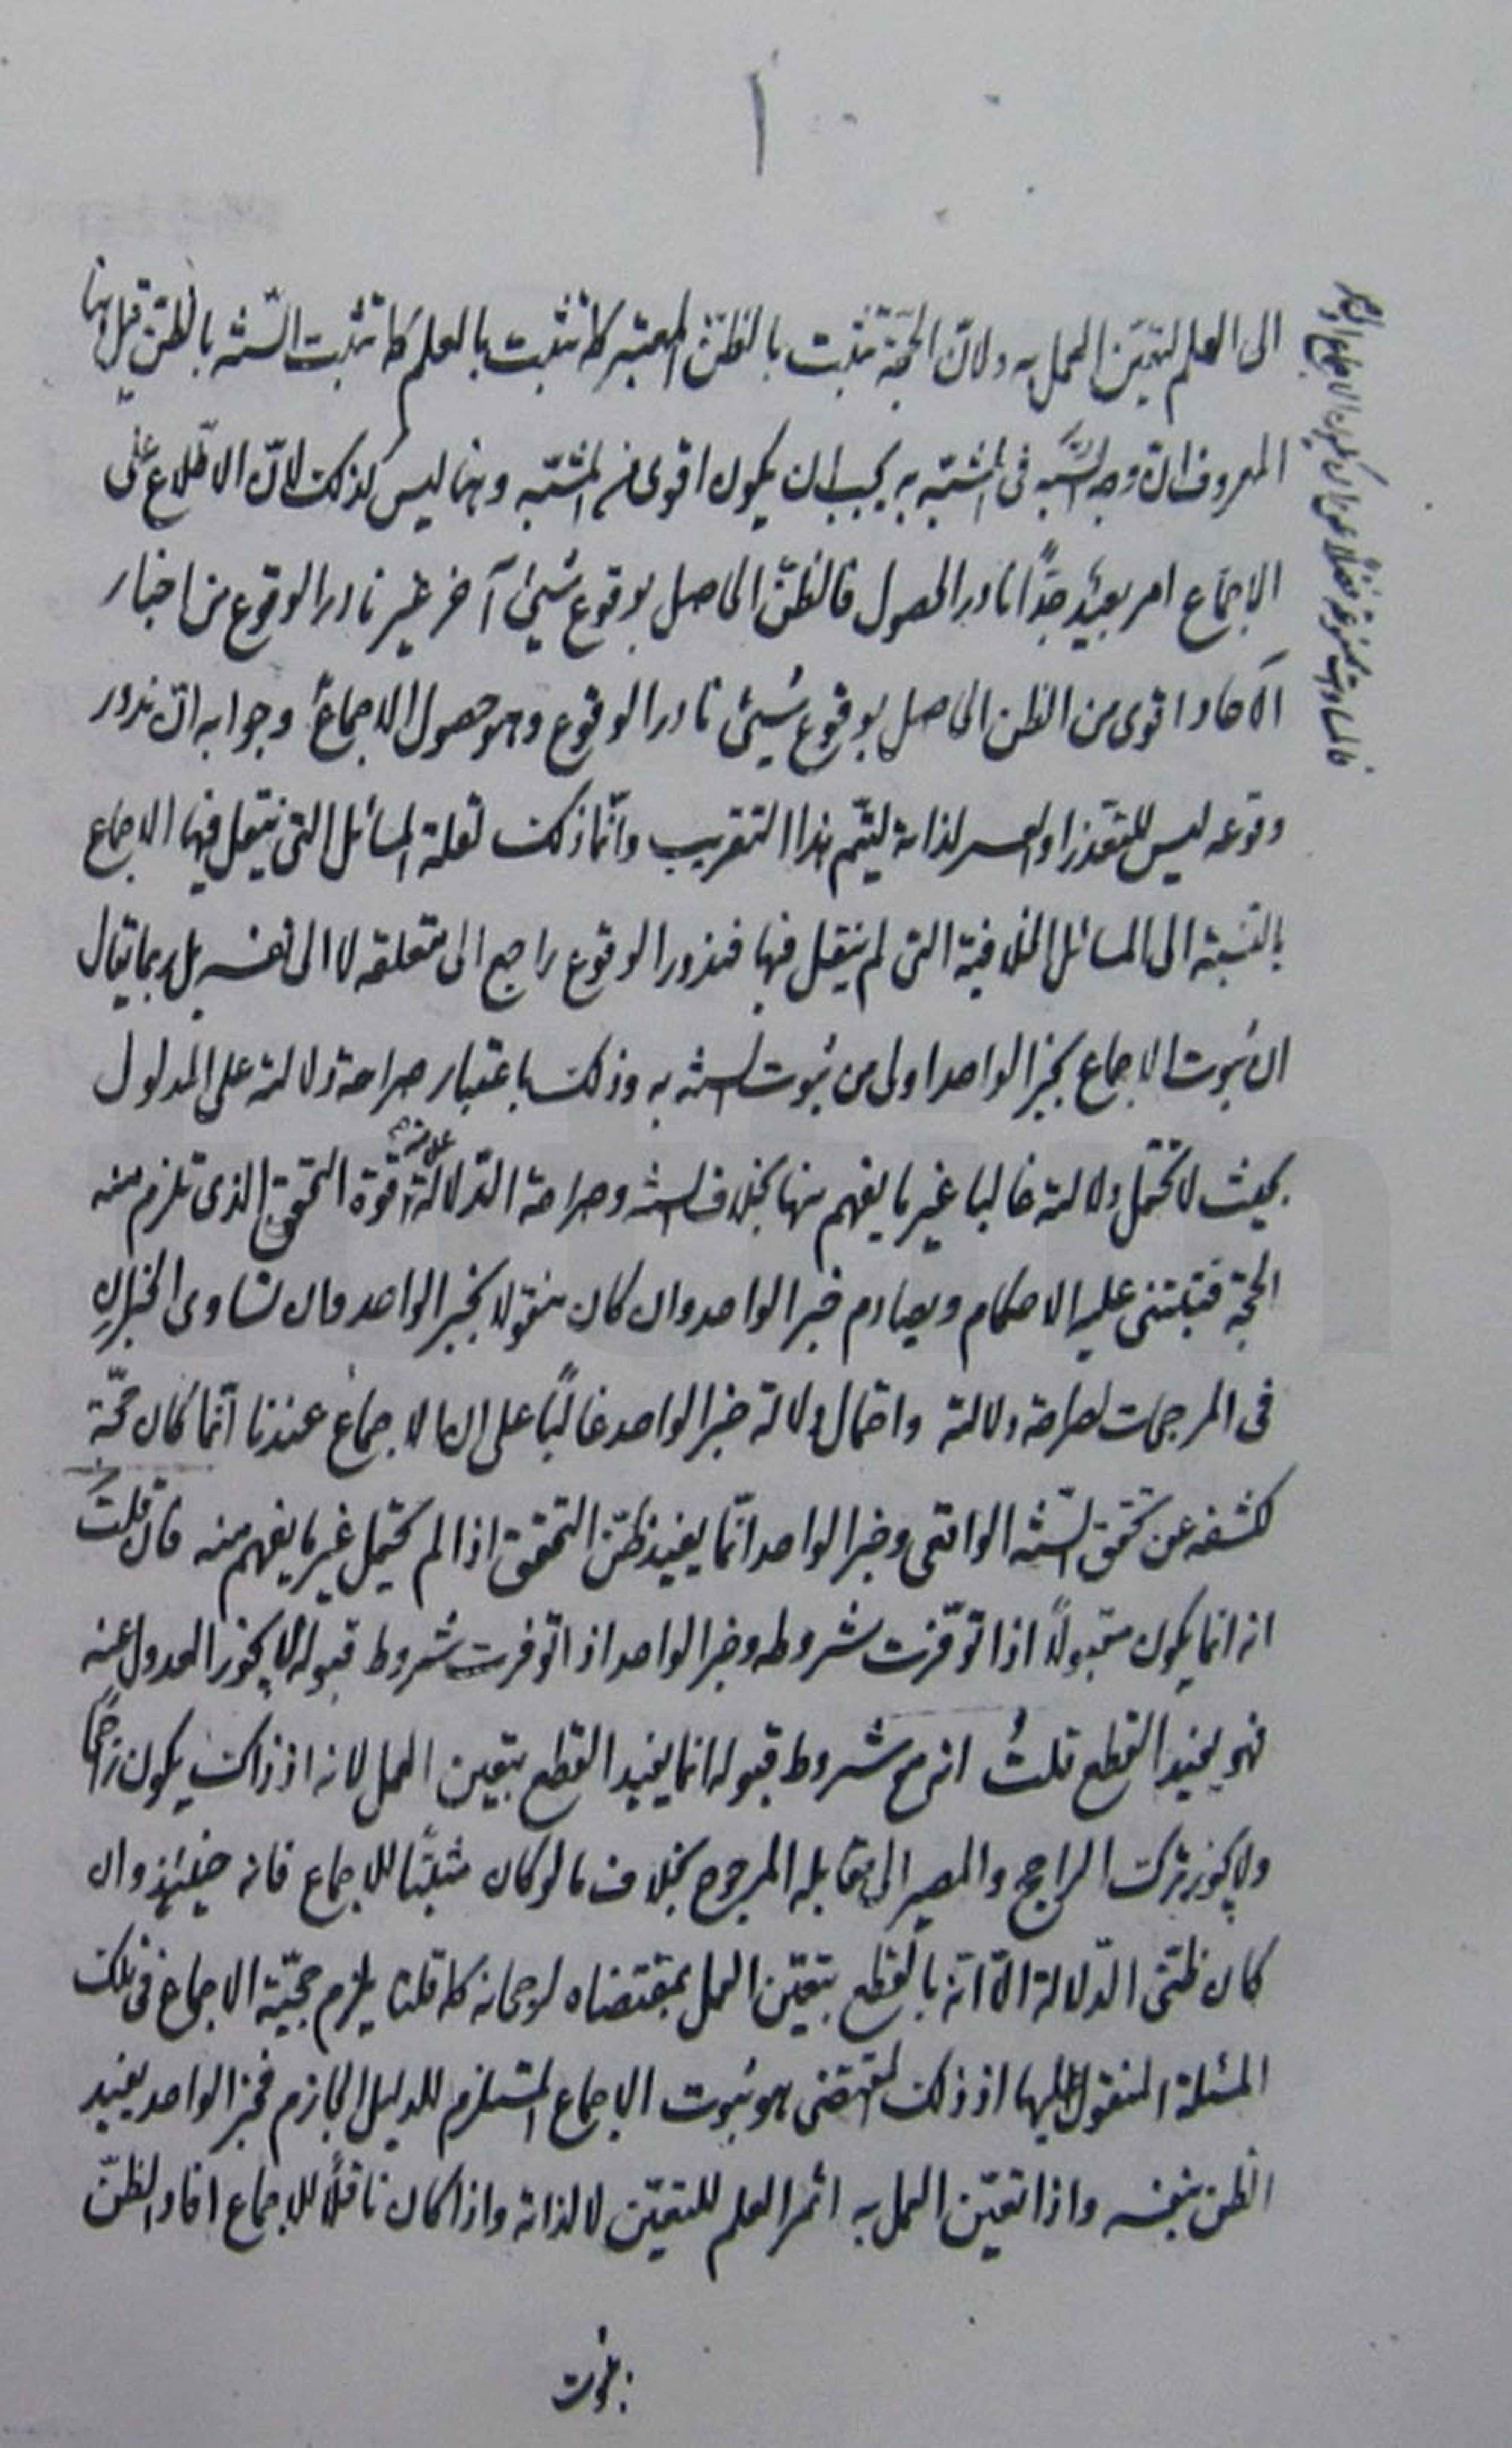 ١
الى العلم لتعيّن العمل به ولانّ الحجّة تثبت بالظنّ المعتبر كما تثبت بالعلم كما تثبت السّنّة بالظنّ قيل هنا
المعروف انّ وجه الشّبه فى المشبّه به يجب ان يكون اقوى من المشبّه وهنا ليس كذلك لانّ الاطّلاع على
الاجماع امر بعيد جدًّا نادر الحصول فالظنّ الحاصل بوقوع شيئ آخر غير نادر الوقوع من اخبار
الآحاد اقوى من الظن الحاصل بوقوع شيئ نادر الوقوع وهو حصول الاجماع وجوابه انّ ندور
وقوعه ليس للتعذر او العسر لذاته ليتمّ هذا التقريب وانّما ذلك لقلة المسائل التى ينتقل فيها الاجماع
بالنسبة الى المسائل الخلافية التى لم ينقل فيها فندور الوقوع راجع الى متعلقه لا الى نفسه بل ربما يقال
ان ثبوت الاجماع بخبر الواحد اولى من ثبوت السنة به وذلك باعتبار صراحة دلالته على المدلول
بحيث لا تحتمل دلالته غالبا غير ما يفهم منها بخلاف السنة وصراحة الدّلالة قوة التحقق الذى تلزم منه
الحجة فتبتنى عليه الاحكام ويصادم خبر الواحد وان كان منقولا بخبر الواحد وان تساوى الخبران
فى المرجحات لصراحة دلالته واحتمال دلالة خبر الواحد غالبًا على ان الاجماع عندنا انّما كان حجّة
لكشفه عن تحقق السّنّة الواقعى وخبر الواحد انّما يفيد ظنّ التحقق اذا لم يحتمل غير ما يفهم منه فان قلت
انه انما يكون مقبولاً اذا توفّرت شروطه وخبر الواحد اذا توفرت شروط قبوله لا يجوز العدول عنه
فهو يفيد القطع قلتُ انه مع شروط قبوله انما يفيد القطع بتعين العمل لانه اذ ذاك يكون راجحًا
ولا يجوز ترك الراجح والمصير الى مقابله المرجوح بخلاف ما لو كان مثبتًا للاجماع فانه حينئذ وان
كان ظنّى الدّلالة الّا انّه بالقطع بتعيّن العمل بمقتضاه لرجحانه كما قلنا يلزم حجيّة الاجماع فى تلك
المسئلة المنقول اليها اذ ذلك المقتضى هو ثبوت الاجماع المستلزم للدليل الجازم فخبر الواحد يفيد
الظن بنفسه واذا تعيّن العمل به اثمر العلم للتعيّن لا لذاته واذا كان ناقلاً للاجماع افاد الظنّ
بثبوت